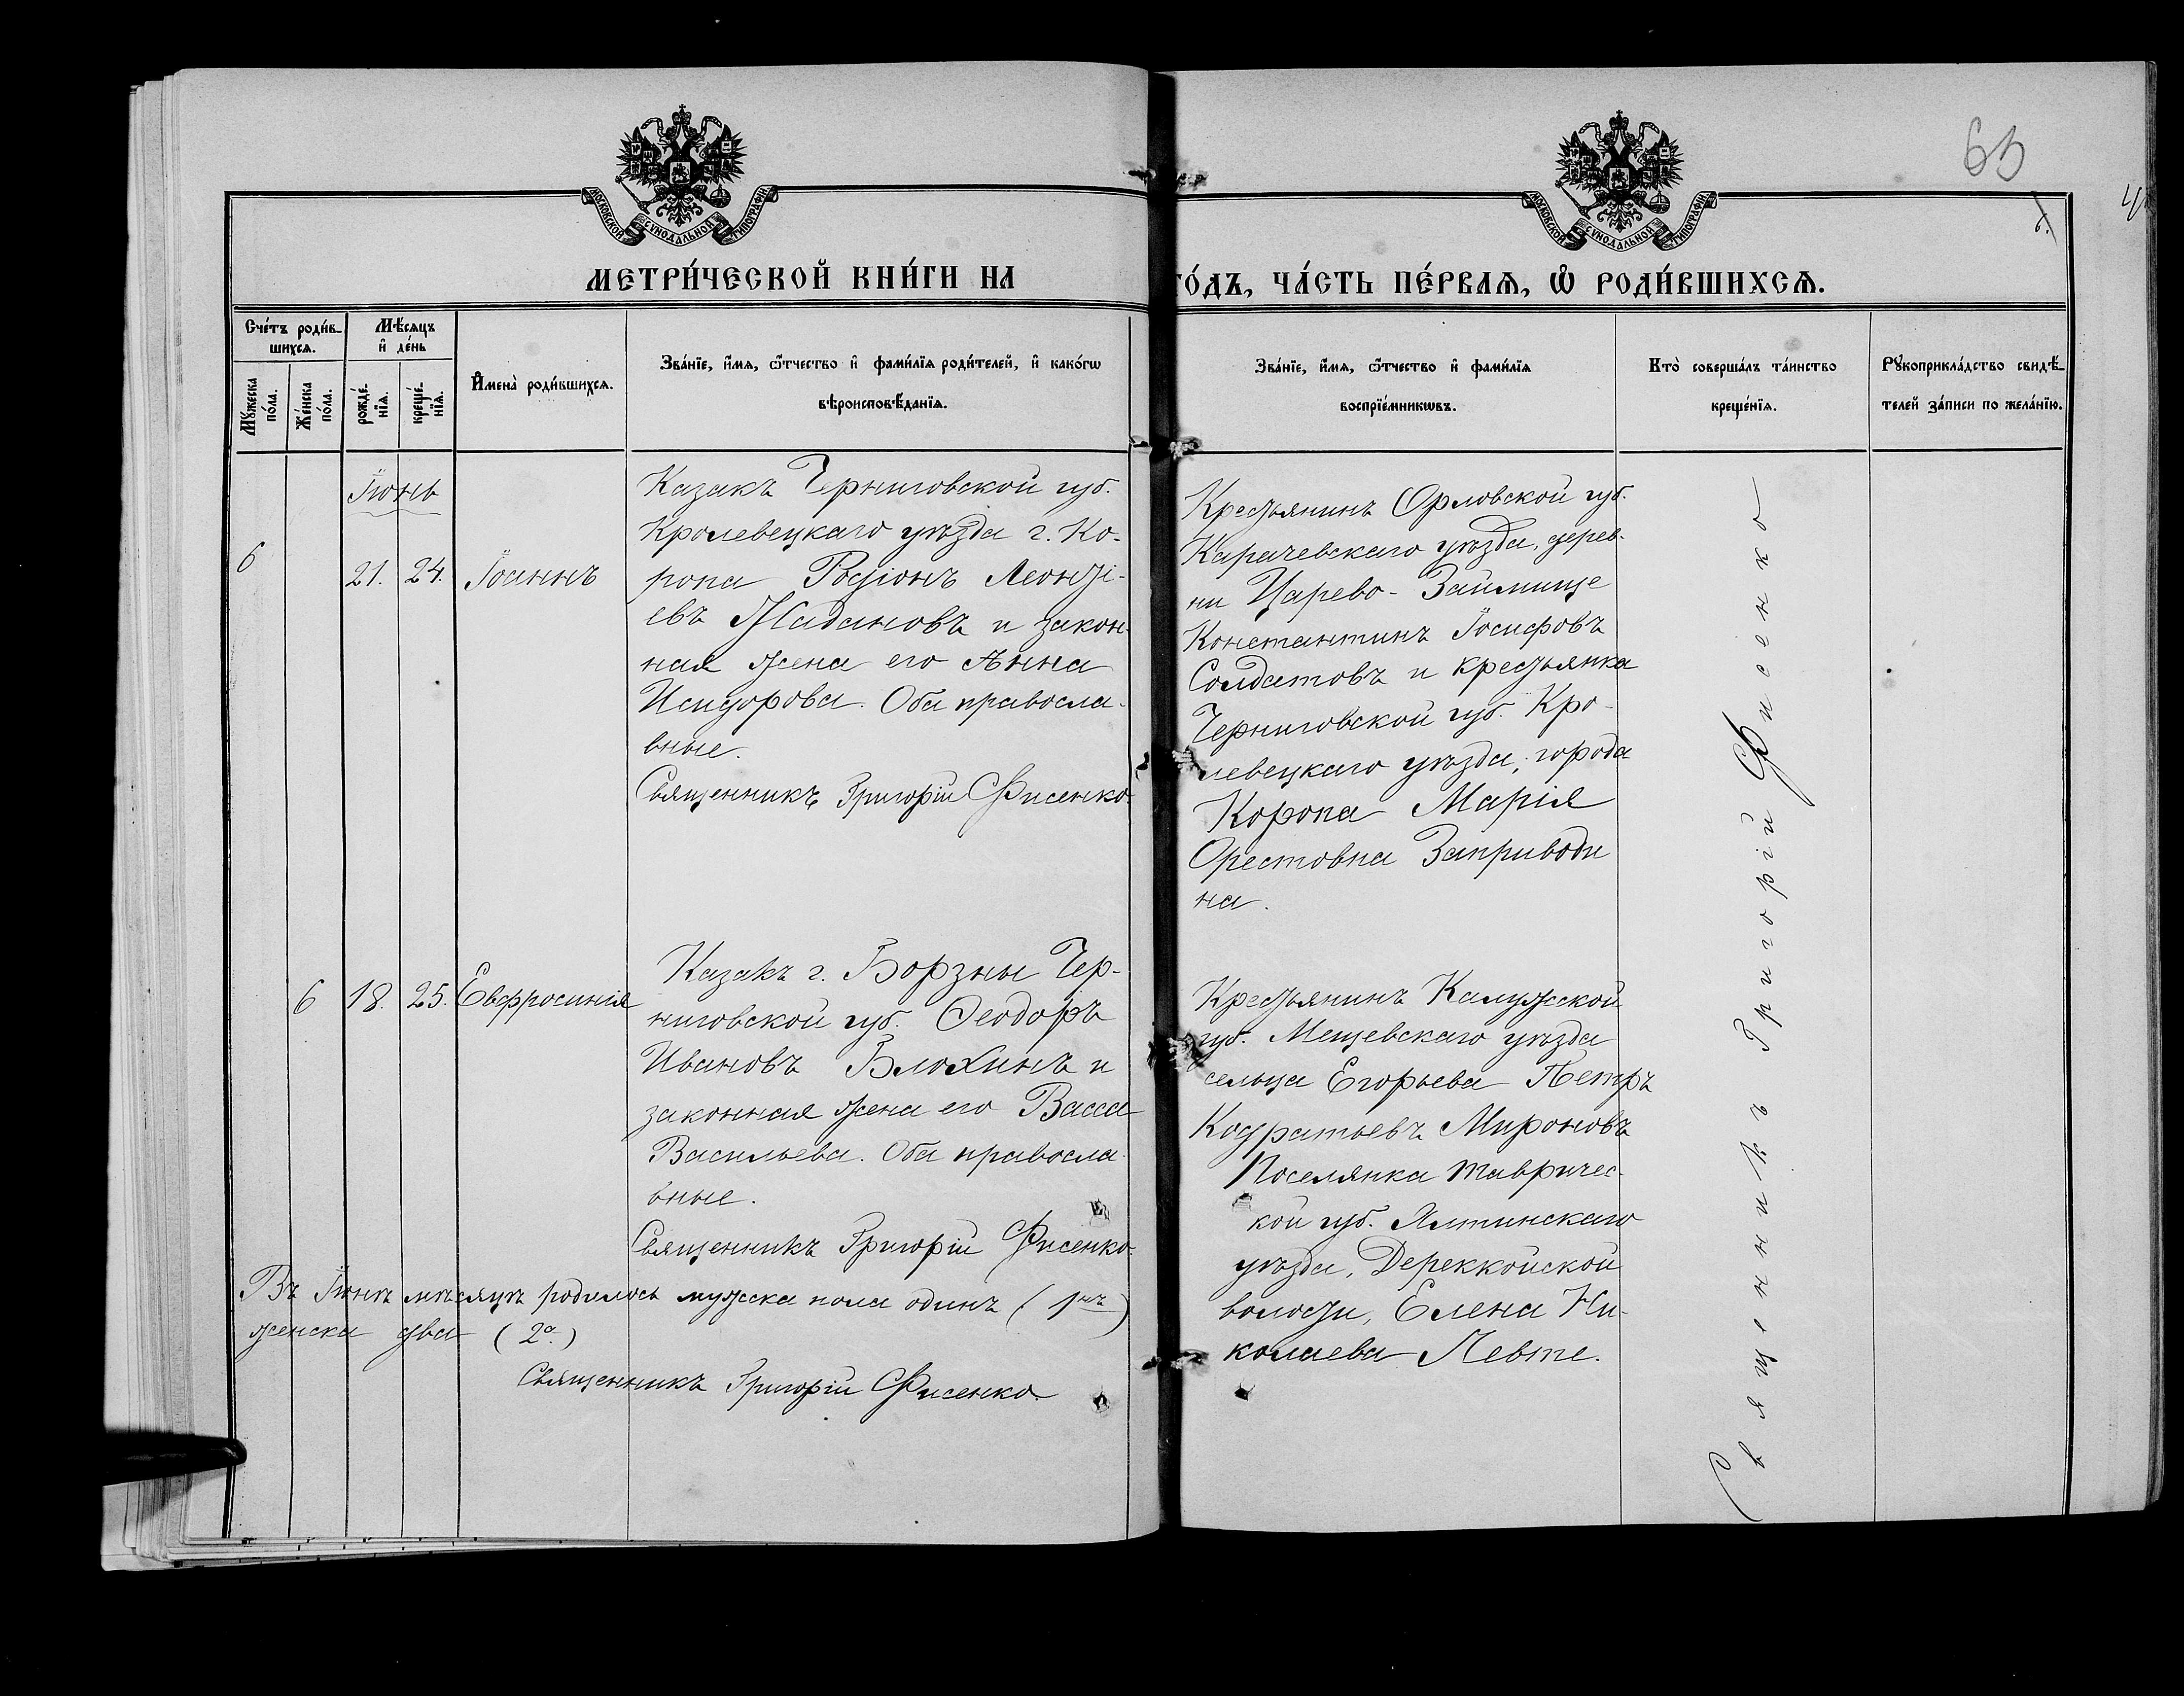 63
6.
МОСКОВСКОЙ СѴНОДАЛЬНОЙ ТИПОГРАФІИ
МОСКОВСКОЙ СѴНОДАЛЬНОЙ ТИПОГРАФІИ
МЕТРИ́ЧЕСКОЙ КНИ́ГИ НА
ГО́ДЪ, ЧА́СТЬ ПЕ́РВАѦ, Ѡ҆ РОДИ́ВШИХСѦ.
Сче́тъ роди́в-
шихсѧ.
Мѣ́сѧцъ
и҆ де́нь
Мꙋ́жеска
по́ла.
Же́нска
по́ла.
рожде́-
нїѧ.
креще́-
нїѧ.
И҆мена̀ роди́вшихсѧ.
Зва́нїе, и҆́мѧ, ѻ҆́тчество и҆ фами́лїѧ роди́телей, и҆ како́гѡ
вѣроисповѣ́данїѧ.
Зва́нїе, и҆́мѧ, ѻ҆́тчество и҆ фами́лїѧ
воспрїе́мникѡвъ.
Кто̀ соверша́лъ та́инство
креще́нїѧ.
Рꙋкоприкла́дство свидѣ́-
телей за́писи по жела́нїю.
Іюнь
6
21. 24. Іоаннъ
Казакъ Черниговской губ.
Кролевецкаго уѣзда г. Ко-
ропа Родіонъ Леонті-
евъ Жадановъ и закон-
ная жена его Анна
Исидорова. Оба правосла-
вные.
Священникъ Григорій Фисенко.
Крестьянинъ Орловской губ.
Карачевскаго уѣзда, дерев-
ни Царево-Займище
Константинъ Іосифовъ
Солдатовъ и крестьянка
Черниговской губ. Кро-
левецкаго уѣзда, города
Коропа Марія
Орестовна Заприводи
на.
6 18. 25. Евфросинія
Казакъ г. Борзны Чер-
ниговской губ. Ѳеодоръ
Ивановъ Блохинъ и
законная жена его Васса
Васильева. Оба правосла-
вные.
Священникъ Григорій Фисенко.
Крестьянинъ Калужской
губ. Мещевскаго уѣзда
сельца Егорьева Петръ
Кодратьевъ Мироновъ
Поселянка Тавричес-
кой губ. Ялтинскаго
уѣзда, Дереккойской
волости, Елена Ни-
колаева Левте.
Священникъ Григорій Фисенко
Въ Іюнѣ мѣсяцѣ родилось мужска пола одинъ (1нъ)
женска два (2а.)
Священникъ Григорій Фисенко.